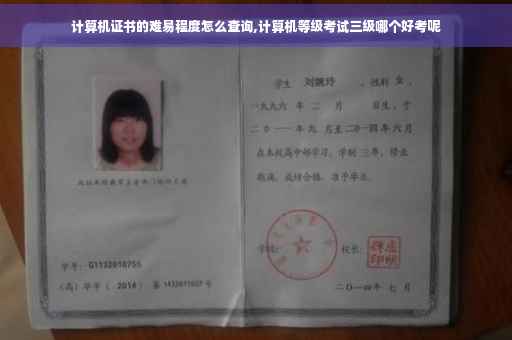 计算机证书的难易程度怎么查询,计算机等级考试三级哪个好考呢
学生 刘婉玲 ，性别 女 ，
一九九六 年 二 月 日生，于
二〇一一 年 九 月至 二〇一四 年 六 月
在本校高中部学习，学制 三 年，修业
期满，成绩合格，准予毕业。
学号： G1132010755
（高）毕字（ 2014 ）第 1432011007 号
学校： 校长：
二〇一四年 七 月